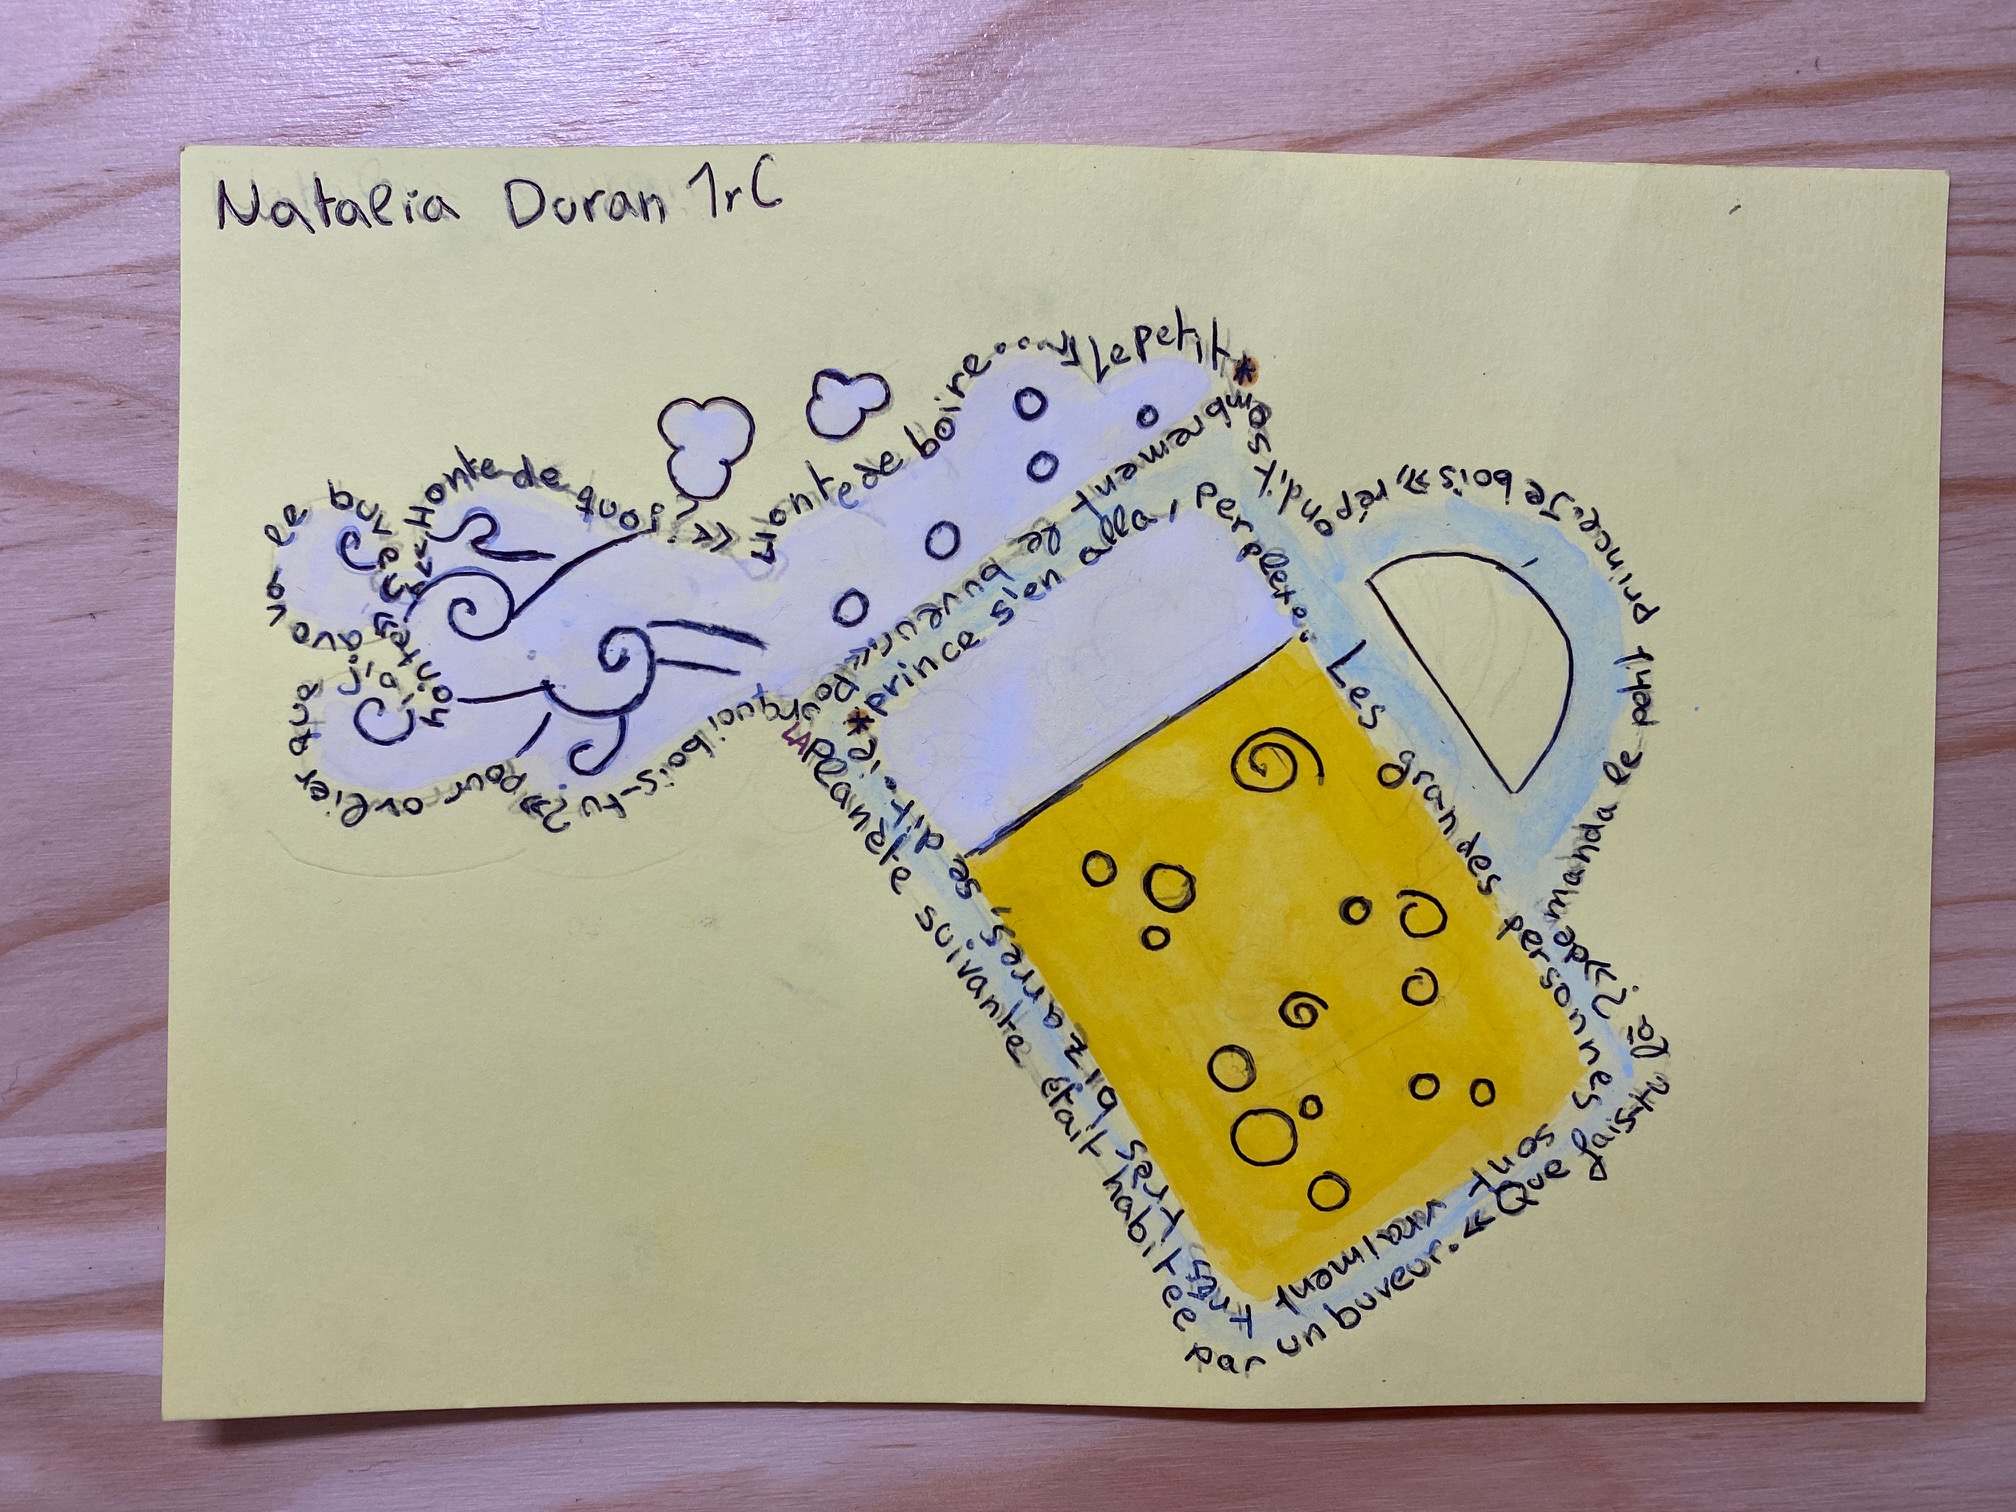 Natalia Duran 1rC
LA Planète suivante était habitée
par un buveur. «Que fais-tu là?» demanda le petit prince. «Je bois», répondit sombrement le buveur. «Pourquoi bois-tu?» «pour oublier
que j'ai honte» avoua le buveur
«Honte de quoi?»
«Honte de boire...» Le petit*
*prince s'en alla, perplexe.
Les grandes personnes sont vraiment très très bizarres, se dit-il.